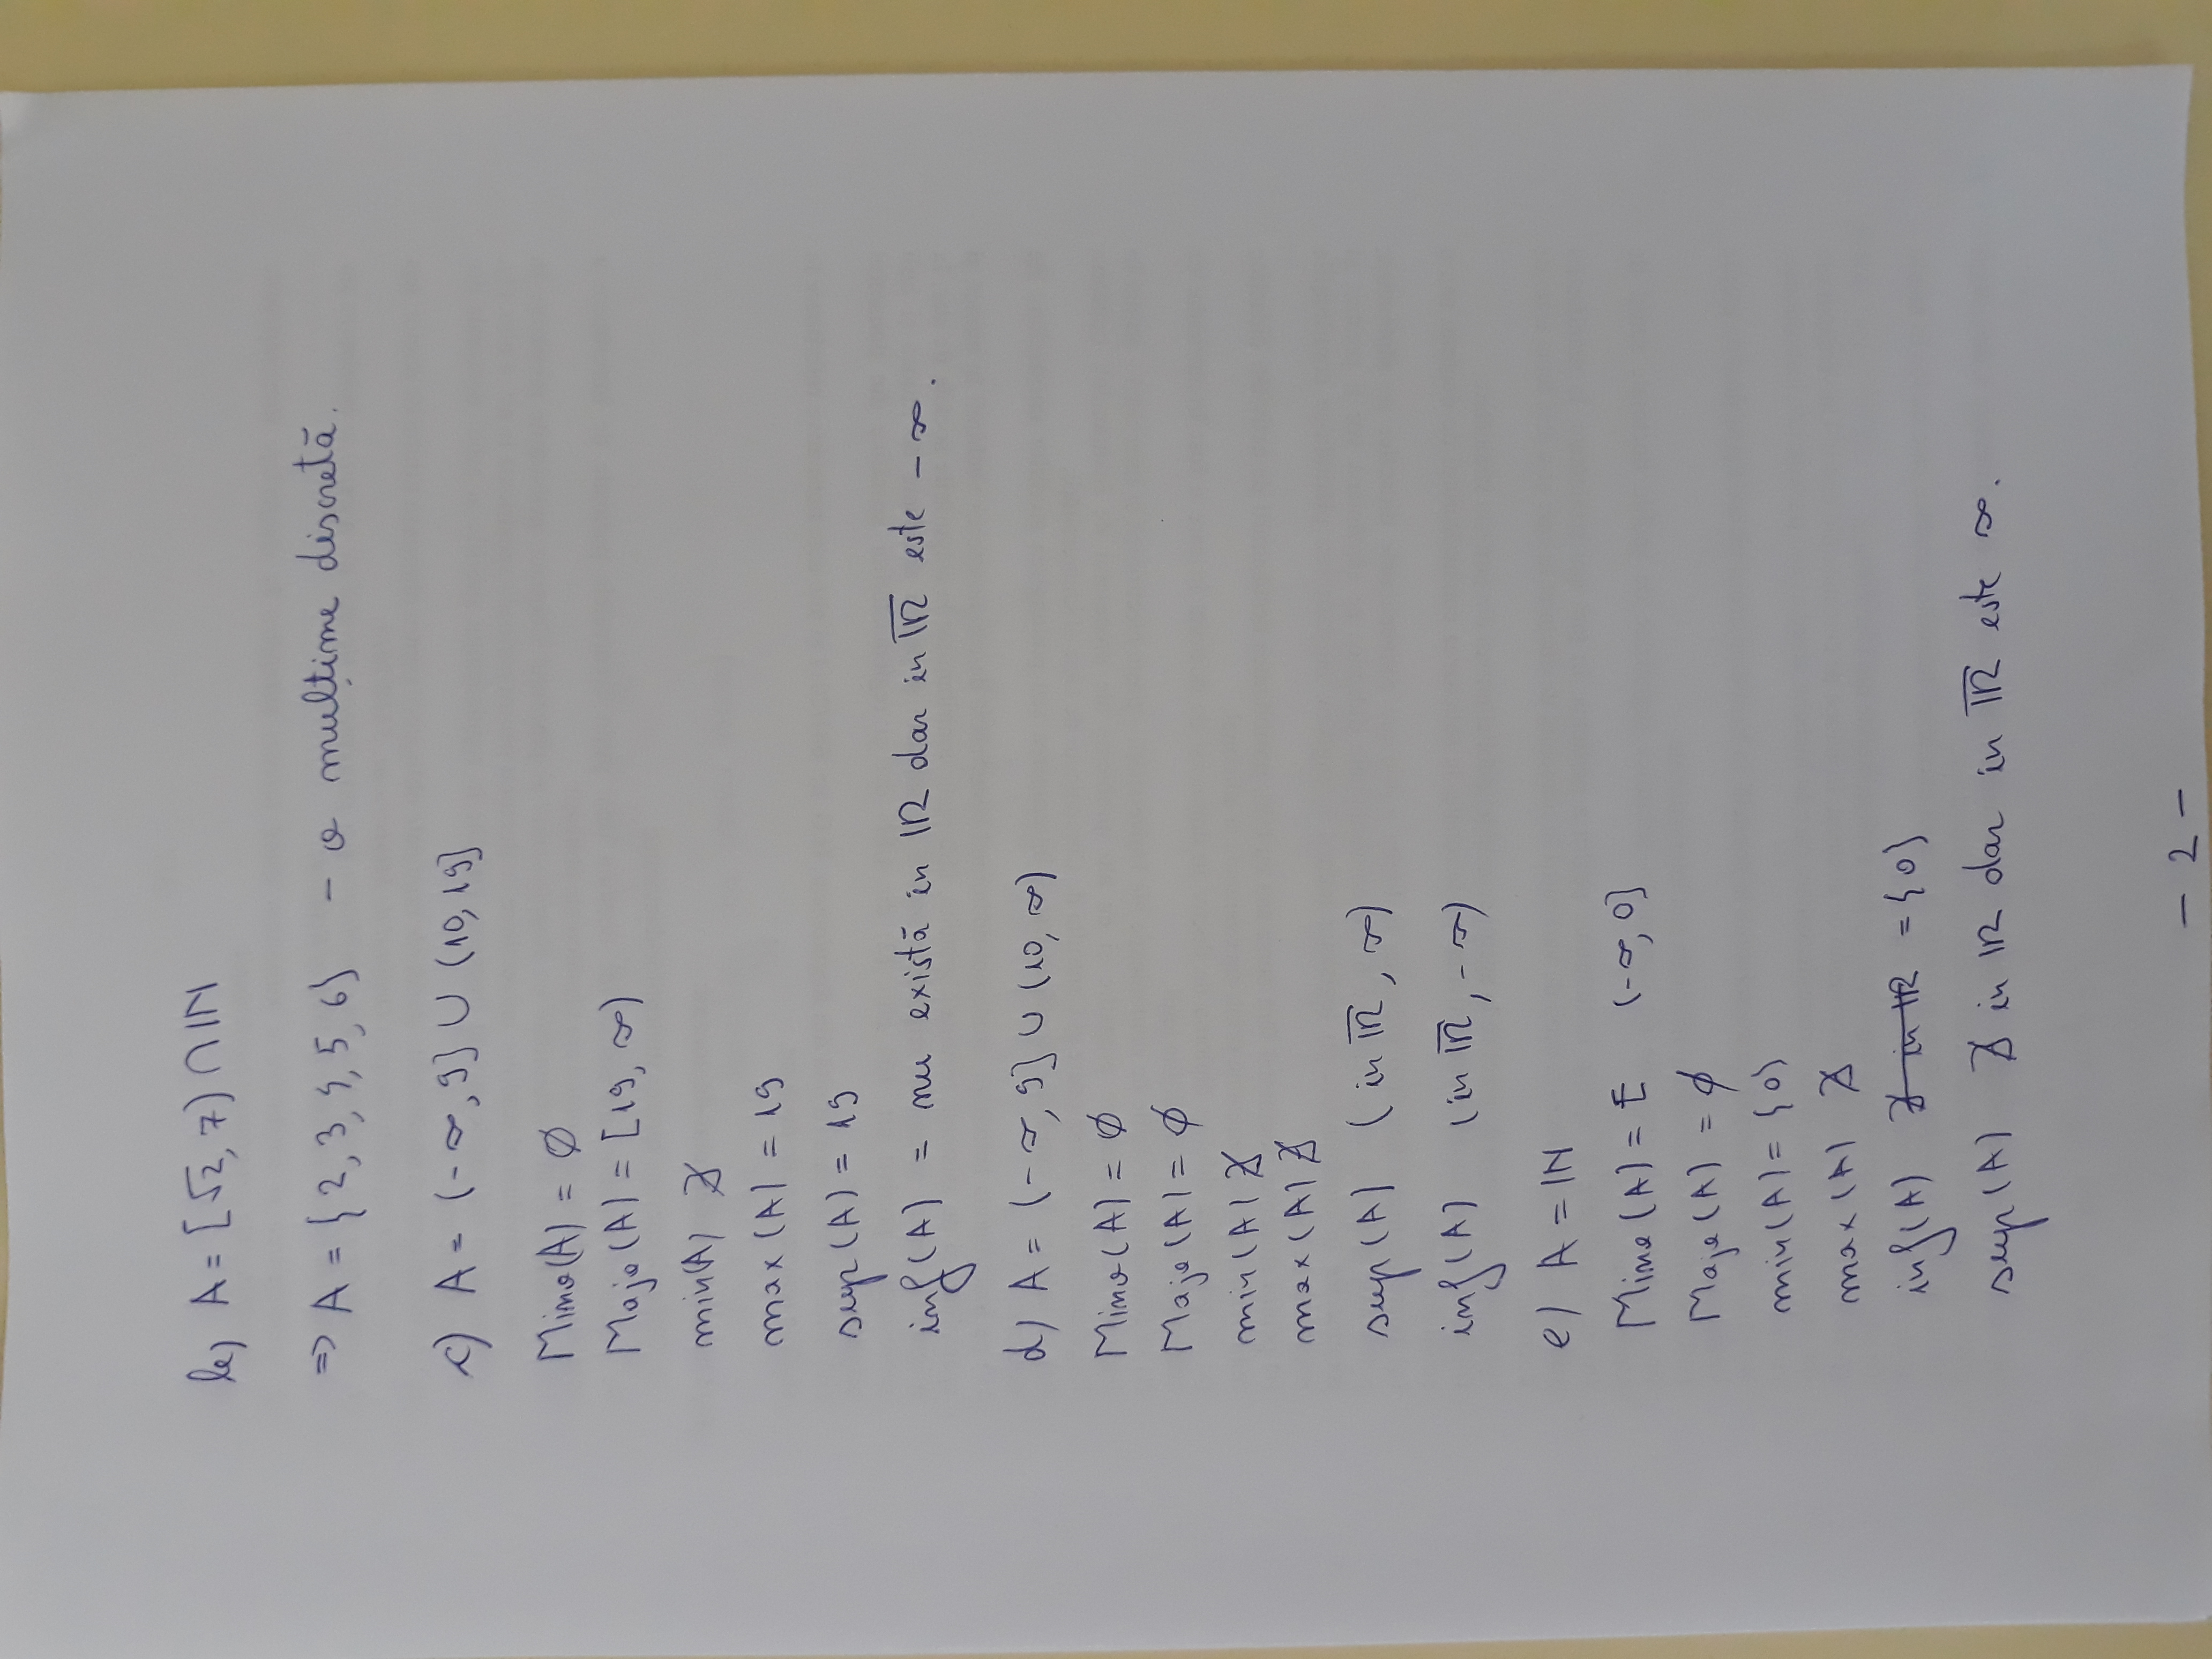 b) A = [√2, 7) ∩ ℕ
⇒ A = {2, 3, 4, 5, 6} - o mulțime discretă.
c) A = (-∞, 9] ∪ (10, 19]
Mino(A) = ∅
Majo(A) = [19, ∞)
min(A) ∄
max(A) = 19
sup(A) = 19
inf(A) = nu există in ℝ dar in ℝ̅ este -∞.
d) A = (-∞, 9] ∪ (10, ∞)
Mino(A) = ∅
Majo(A) = ∅
min(A) ∄
max(A) ∄
sup(A) (in ℝ̅, ∞)
inf(A) (in ℝ̅, -∞)
e) A = ℕ
Mino(A) = E (-∞, 0]
Majo(A) = ∅
min(A) = {0}
max(A) ∄
inf(A) ∄ in ℝ = {0}
sup(A) ∄ in ℝ dar in ℝ̅ este ∞.
- 2 -